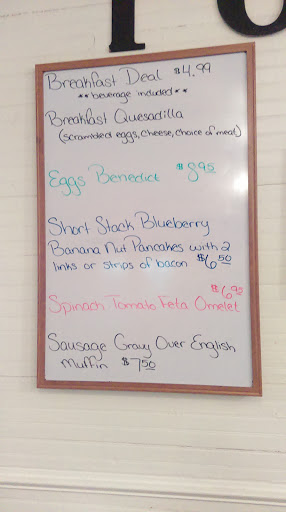 Breakfast Deal $4.99
** beverage included **
Breakfast Quesadilla
(scrambled eggs, cheese, choice of meat)
Eggs Benedict $8.95
Short Stack Blueberry
Banana Nut Pancakes with 2
links or strips of bacon $6.50
$6.92
Spinach Tomato Feta Omelet
Sausage Gravy Over English
muffin $7.50